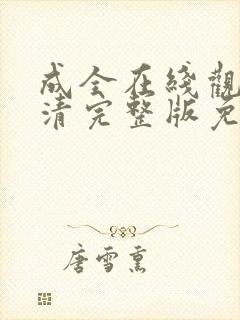 成全在綫觀
清完整版免
唐雪熏